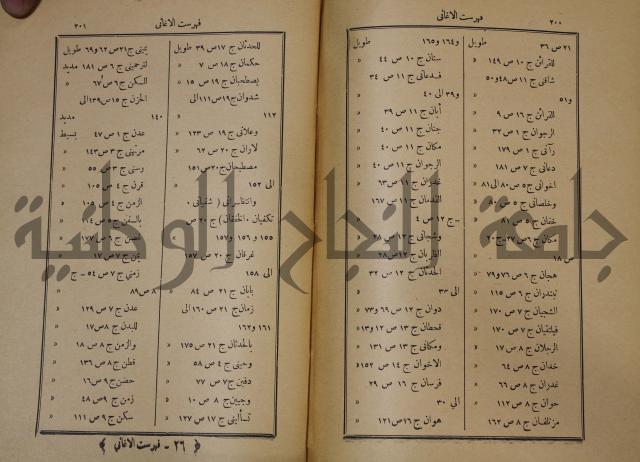 ٢٠٠
فهرست الاغاني
٢١ ص ٣٦ طويل
للقرائن ج ١٠ ص ١٤٩ »
شافني ج ١١ ص ٤٨ و ٥٠
و ٥١
للقرائن ج ١٦ ص ٩ »
الرجوان ج ١ ص ٣٢ »
رآني ج ١ ص ١٧٩ »
دعاني ج ٧ ص ١٨١ »
اخواني ج ٥ ص ٨٠ الى ٨١ »
وخلصاني ج ٥ ص ٨٠ »
ختان ج ٥ ص ٨١ »
مكان ج ٦ ص ٢٧ - ج ٢٠
ص ١٨ »
هجان ج ٦ ص ٧٦ و ٧٩ »
تبتدران ج ٦ ص ١١٥ »
الشجيان ج ٧ ص ١٧٠ »
فيلتقيان ج ٧ ص ١٧٠ »
الرجلان ج ٨ ص ١٧ »
خدان ج ٨ ص ٦٤ »
غدران ج ٨ ص ٦٦ »
حوان ج ٨ ص ١١٢ »
مرتلفان ج ٨ ص ١٦٢ »
و ١٦٤ و ١٦٥ طويل
سنان ج ١٠ ص ٤٤ »
فدعاني ج ١١ ص ٣٤
و ٣٩ الى ٤٠ »
أبان ج ١١ ص ٣٩ »
جنان ج ١١ ص ٤٠ »
مكان ج ١١ ص ٤٠ »
الرجوان ج ١١ ص ٤٠ »
غدران ج ١١ ص ٦٣ »
الندمان ج ١١ ص ١٦٧
- ج ١٢ ص ٤ »
وشجاني ج ١٢ ص ٢٨ »
ج ١٢ ص ٢٨ »
الحدثان ج ١٢ ص ٣٢
الى ٣٣ »
دوان ج ١٢ ص ٦٩ و ٧٣ »
قحطان ج ١٣ ص ١٢ و ١٣ »
ومكاني ج ١٣ ص ١٣١ »
الاخوان ج ١٤ ص ١٥٢ »
فرسان ج ١٦ ص ٢٩
الى ٣٠ »
هوان ج ١٦ ص ١٢١ »
فهرست الاغاني
٢٠١
للحدثان ج ١٧ ص ٣٩ طويل
حكمان ج ١٨ ص ٧ »
يصطحبان ج ١٩ ص ١٥ »
شدوان ج ١٩ ص ١١١ الى
١١٢ »
وعلاني ج ١٩ ص ١٢٣ »
لاران ج ٢٠ ص ٦٢ »
مصطحبان ج ٢٠ ص ١٥١
الى ١٥٢ »
وانتقاسراني ( شفياني .
تكفيان . الخفقان ) ج ٢٠ ص
١٥٥ و ١٥٦ و ١٥٧ »
غرفان ج ٢٠ ص ١٥٧
الى ١٥٨ »
بابان ج ٢١ ص ٨٤ »
زمان ج ٢١ ص ١٦٠ الى
١٦١ و ١٦٢ »
بالحدثان ج ٢١ ص ١٧٥ »
وحيني ج ٤ ص ٥٨ »
دفين ج ٧ ص ٧٧ »
وجبين ج ٨ ص ١٠ »
تسأليني ج ١٧ ص ١٢٧ »
يمني ج ٢١ ص ٦٢ و ٦٩ طويل
لترحميني ج ٦ ص ١٨١ مديد
السكن ج ٦ ص ٦٧ »
الحزن ج ١٥ ص ١٣٩ الى
١٤٠ مديد
عدن ج ١ ص ٤٧ بسيط
مرتهني ج ٣ ص ١٤٣ »
رسني ج ٣ ص ٥٥ »
قرن ج ٤ ص ١٠٥ »
الزمن ج ٤ ص ١٠٥ »
بالسفن ج ٥ ص ١١٤ »
غصن ج ٦ ص ١٧٧ »
ج ٧ ص ١٧ »
زمني ج ٧ ص ٥٤ - ج
٨ ص ٨٩ »
عدن ج ٧ ص ١٢٩ »
للبدن ج ٨ ص ١٧ »
والزمن ج ٨ ص ١٨ »
قطن ج ٨ ص ١٣٦ »
حضن ج ٩ ص ١٦ »
زمن ج ٩ ص ٤٨ »
سكن ج ٩ ص ١١١ »
﴿ ٢٦ - فهرست الاغاني ﴾
جامعة النجاح الوطنية